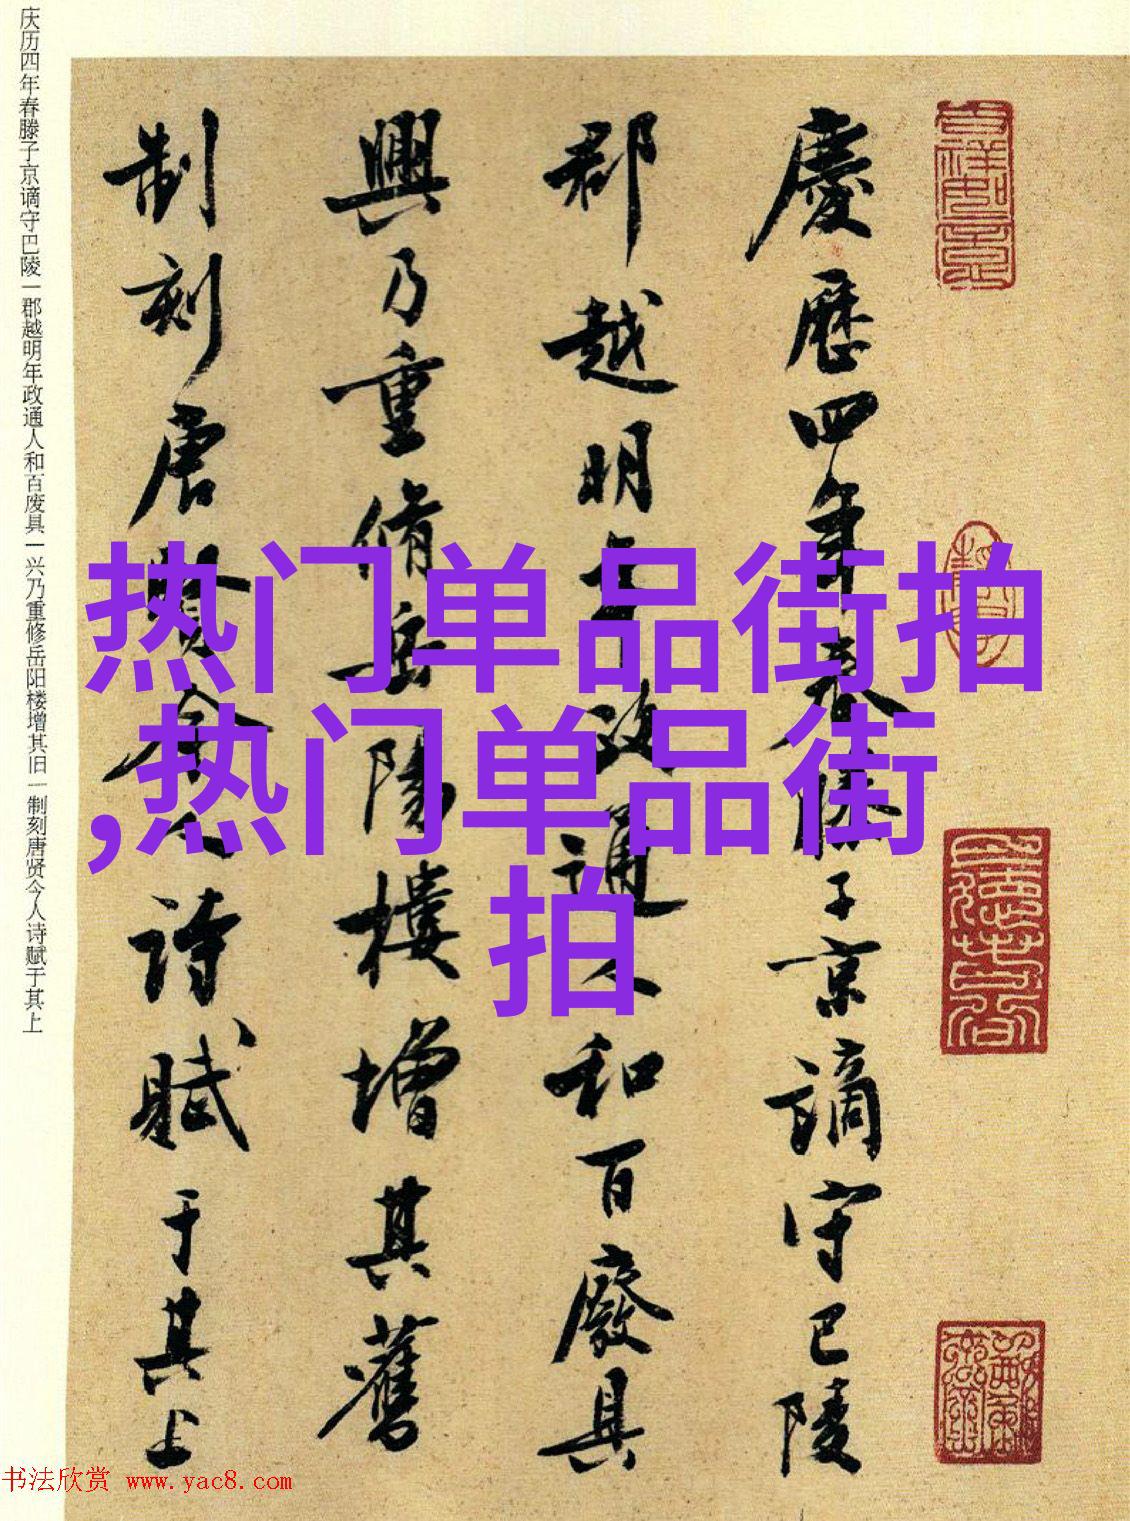 慶歷四年春滕子京謫守巴陵
郡越明年政通人和百廢具
興乃重脩岳陽樓增其舊
制刻唐賢今人詩賦于其上
庆历四年春滕子京谪守巴陵一郡越明年政通人和百废具一兴乃重修岳阳楼增其旧一制刻唐贤今人诗赋于其上
热门单品街拍
,热门单品街
拍
书法欣赏 www.yac8.com